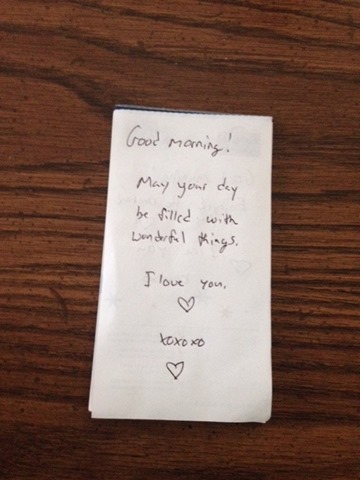 Good morning!
May your day
be filled with
wonderful things.
I love you.
♡
xoxoxo
♡